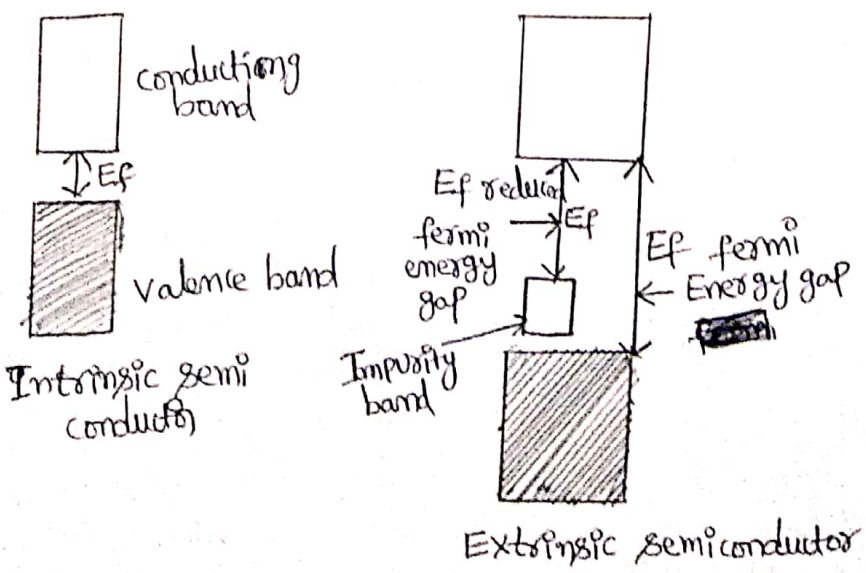 conductiong
band
Ef
valence band
Intrinsic semi
conductor
Ef reduced
fermi
energy
gap
Ef
Impurity
band
Ef fermi
Energy gap
Extrinsic semiconductor